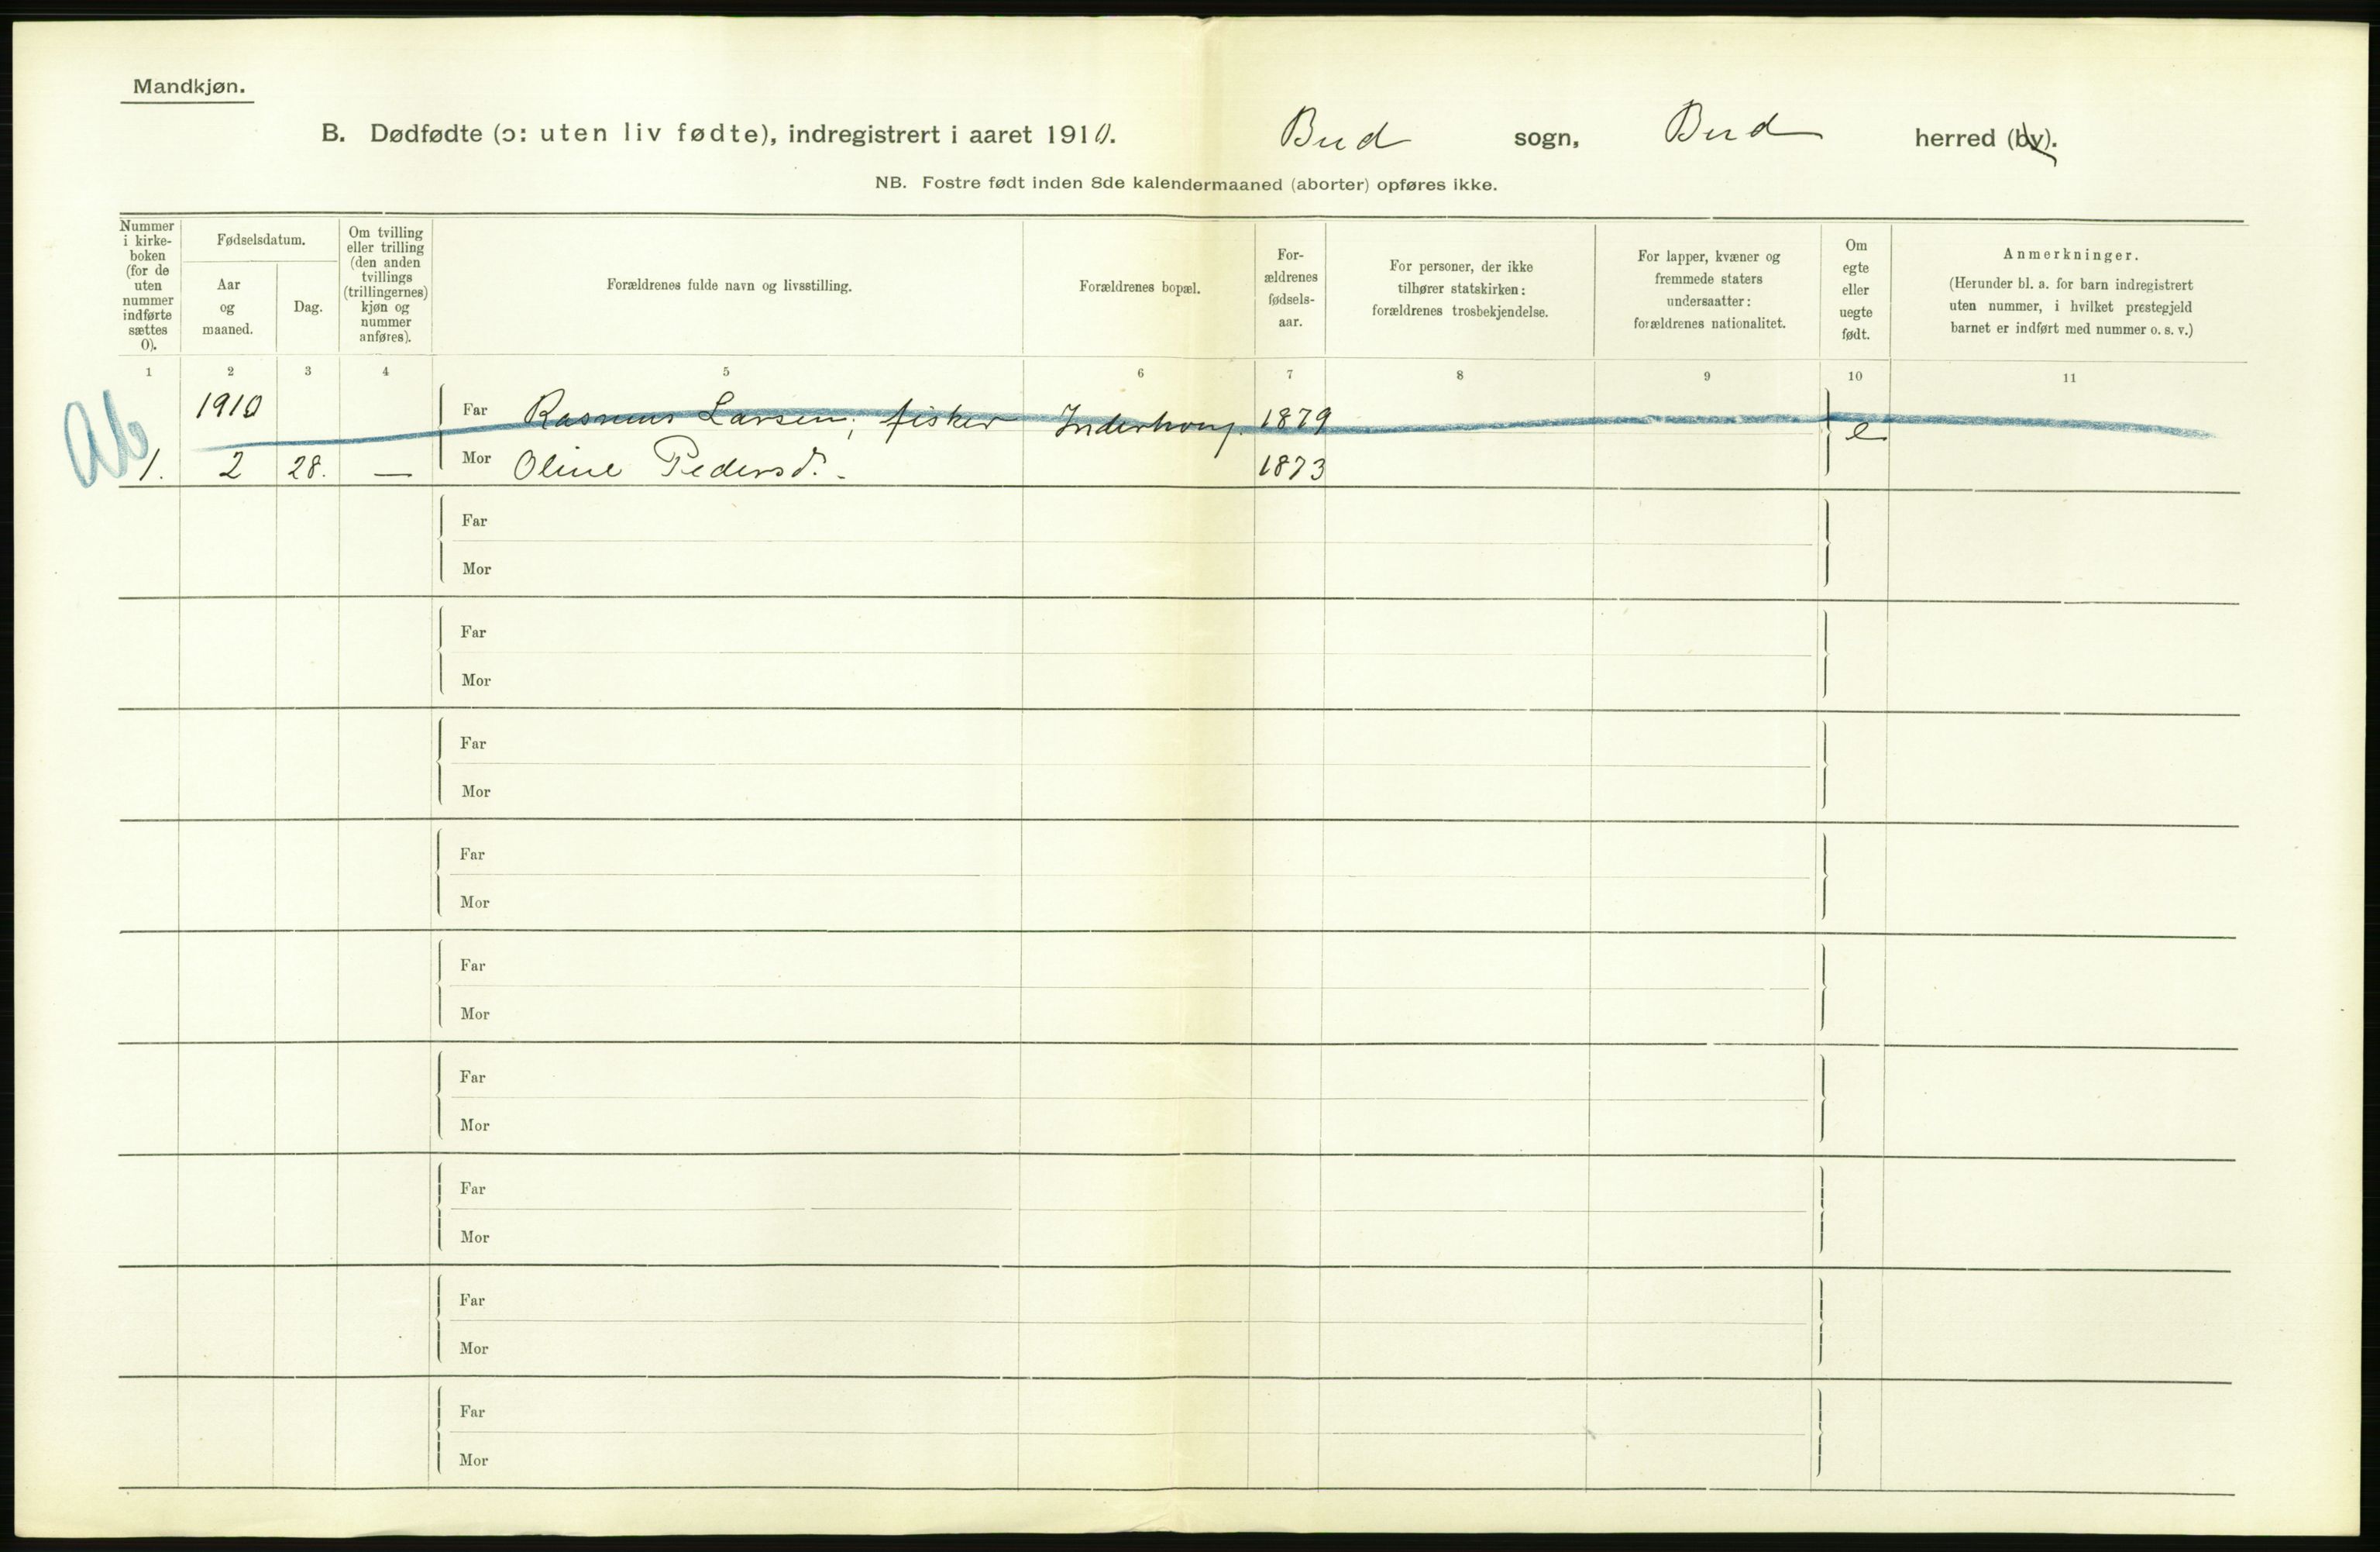 Mandkjøn.
B. Dødfødte (ɔ: uten liv fødte), indregistrert i aaret 1910. Bud sogn, Bud herred (by).
NB. Fostre født inden 8de kalendermaaned (aborter) opføres ikke.
Nummer i kirke- boken (for de uten nummer indførte sættes 0).
Fødselsdatum.
Aar og maaned.
Dag.
Om tvilling eller trilling (den anden tvillings (trillingernes) kjøn og nummer anføres).
Forældrenes fulde navn og livsstilling.
Forældrenes bopæl.
For- ældrenes fødsels- aar.
For personer, der ikke tilhører statskirken: forældrenes trosbekjendelse.
For lapper, kvæner og fremmede staters undersaatter: forældrenes nationalitet.
Om egte eller uegte født.
Anmerkninger.
(Herunder bl. a. for barn indregistrert uten nummer, i hvilket prestegjeld barnet er indført med nummer o. s. v.)
1 2 3 4 5 6 7 8 9 10 11
Ab
1910 Far Rasmus Larsen, fisker 1879
e
1. 2 28. — Mor Oline Pedersd. 1873
Far
Mor
Far
Mor
Far
Mor
Far
Mor
Far
Mor
Far
Mor
Far
Mor
Far
Mor
Far
Mor